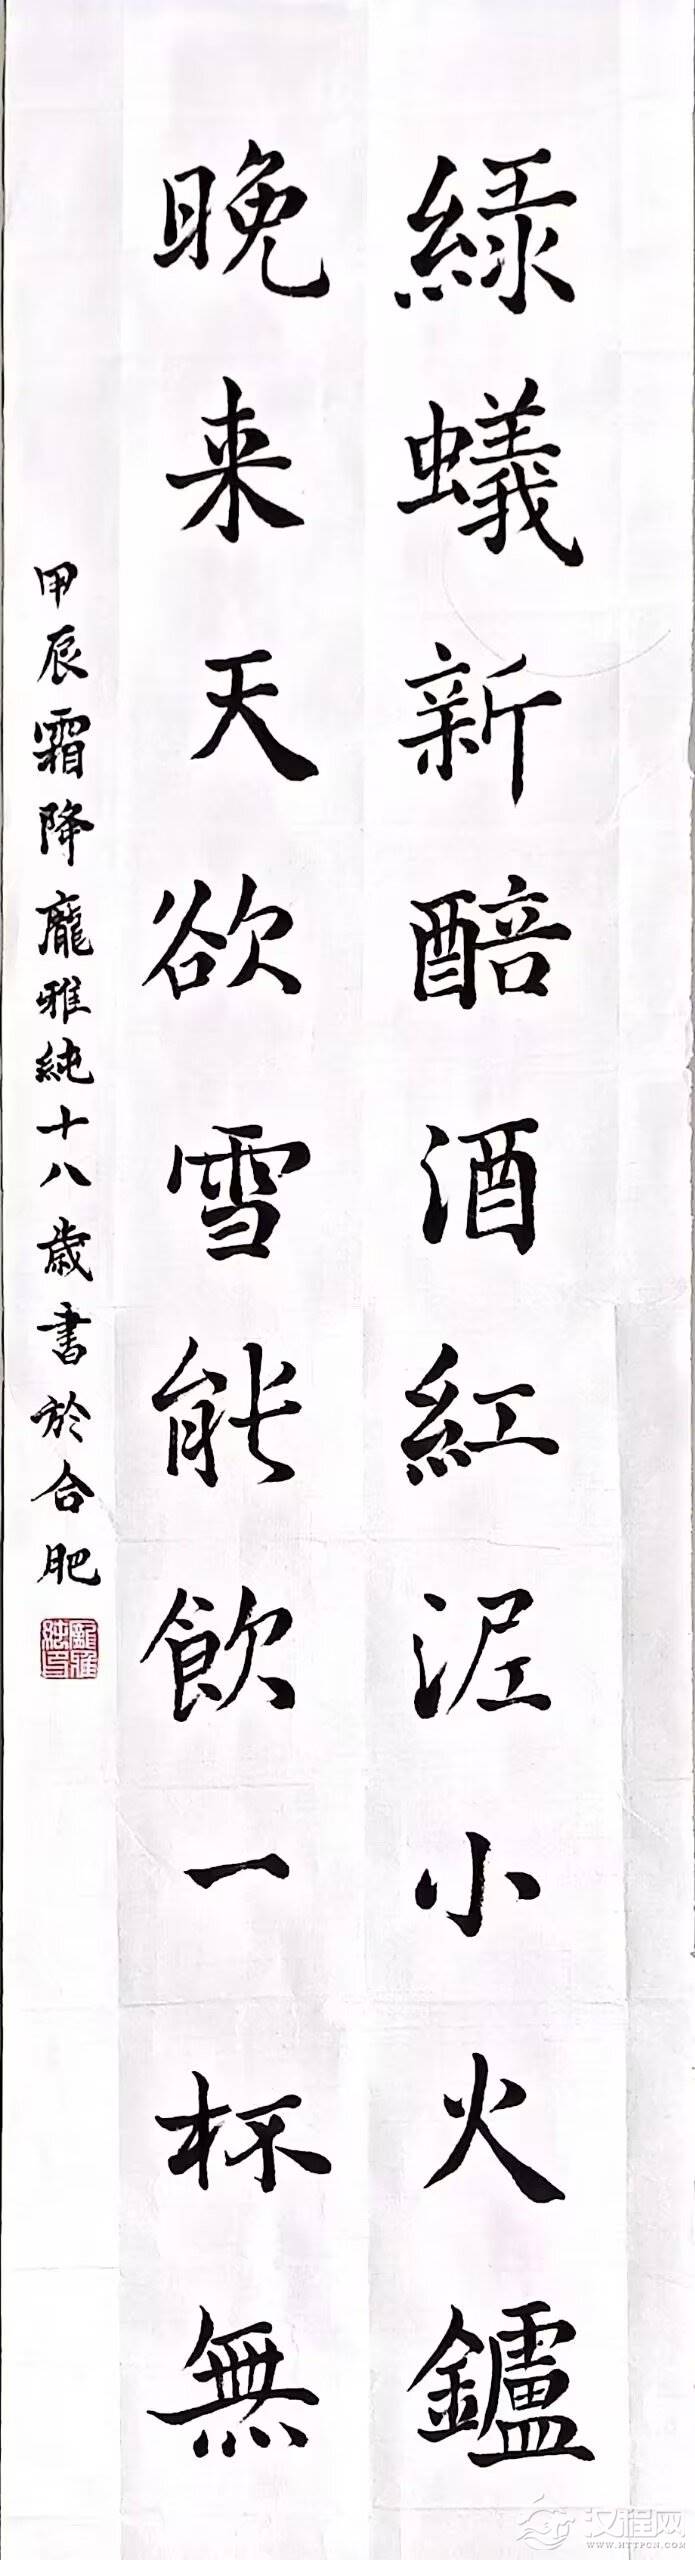 緑蟻新醅酒紅泥小火鑪
晚来天欲雪能飲一杯無
甲辰霜降龐雅純十八歲書於合肥
龐雅純印
汉程网
WWW.HTTPCN.COM